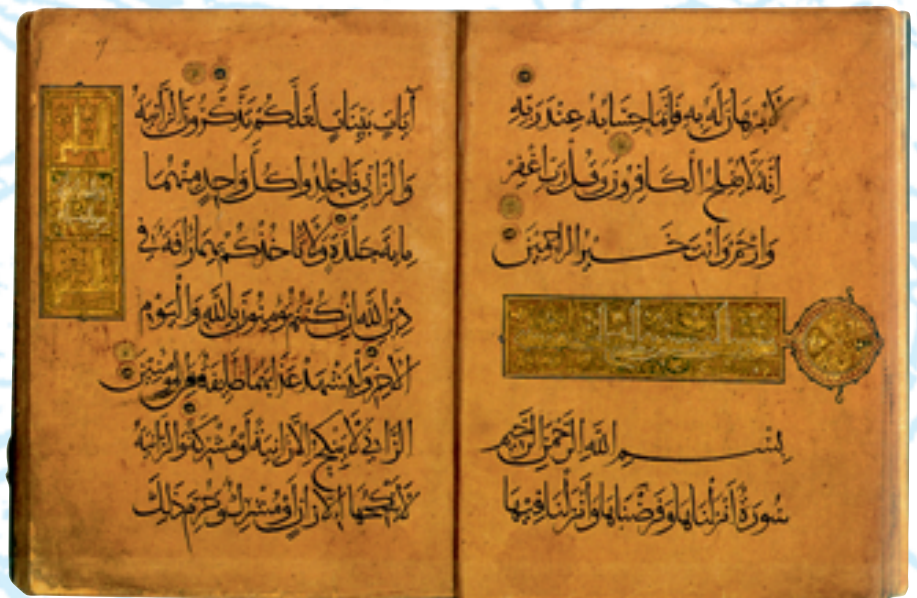 لا برهان له به فإنما حسابه عند ربه
إنه لا يفلح الكافرون وقل رب اغفر
وارحم وأنت خير الراحمين
بسم الله الرحمن الرحيم
سورة أنزلناها وفرضناها وأنزلنا فيها
آيات بينات لعلكم تذكرون الزانية
والزاني فاجلدوا كل واحد منهما
مائة جلدة ولا تأخذكم بهما رأفة في
دين الله إن كنتم تؤمنون بالله واليوم
الآخر وليشهد عذابهما طائفة من المؤمنين
الزاني لا ينكح إلا زانية أو مشركة والزانية
لا ينكحها إلا زان أو مشرك وحرم ذلك